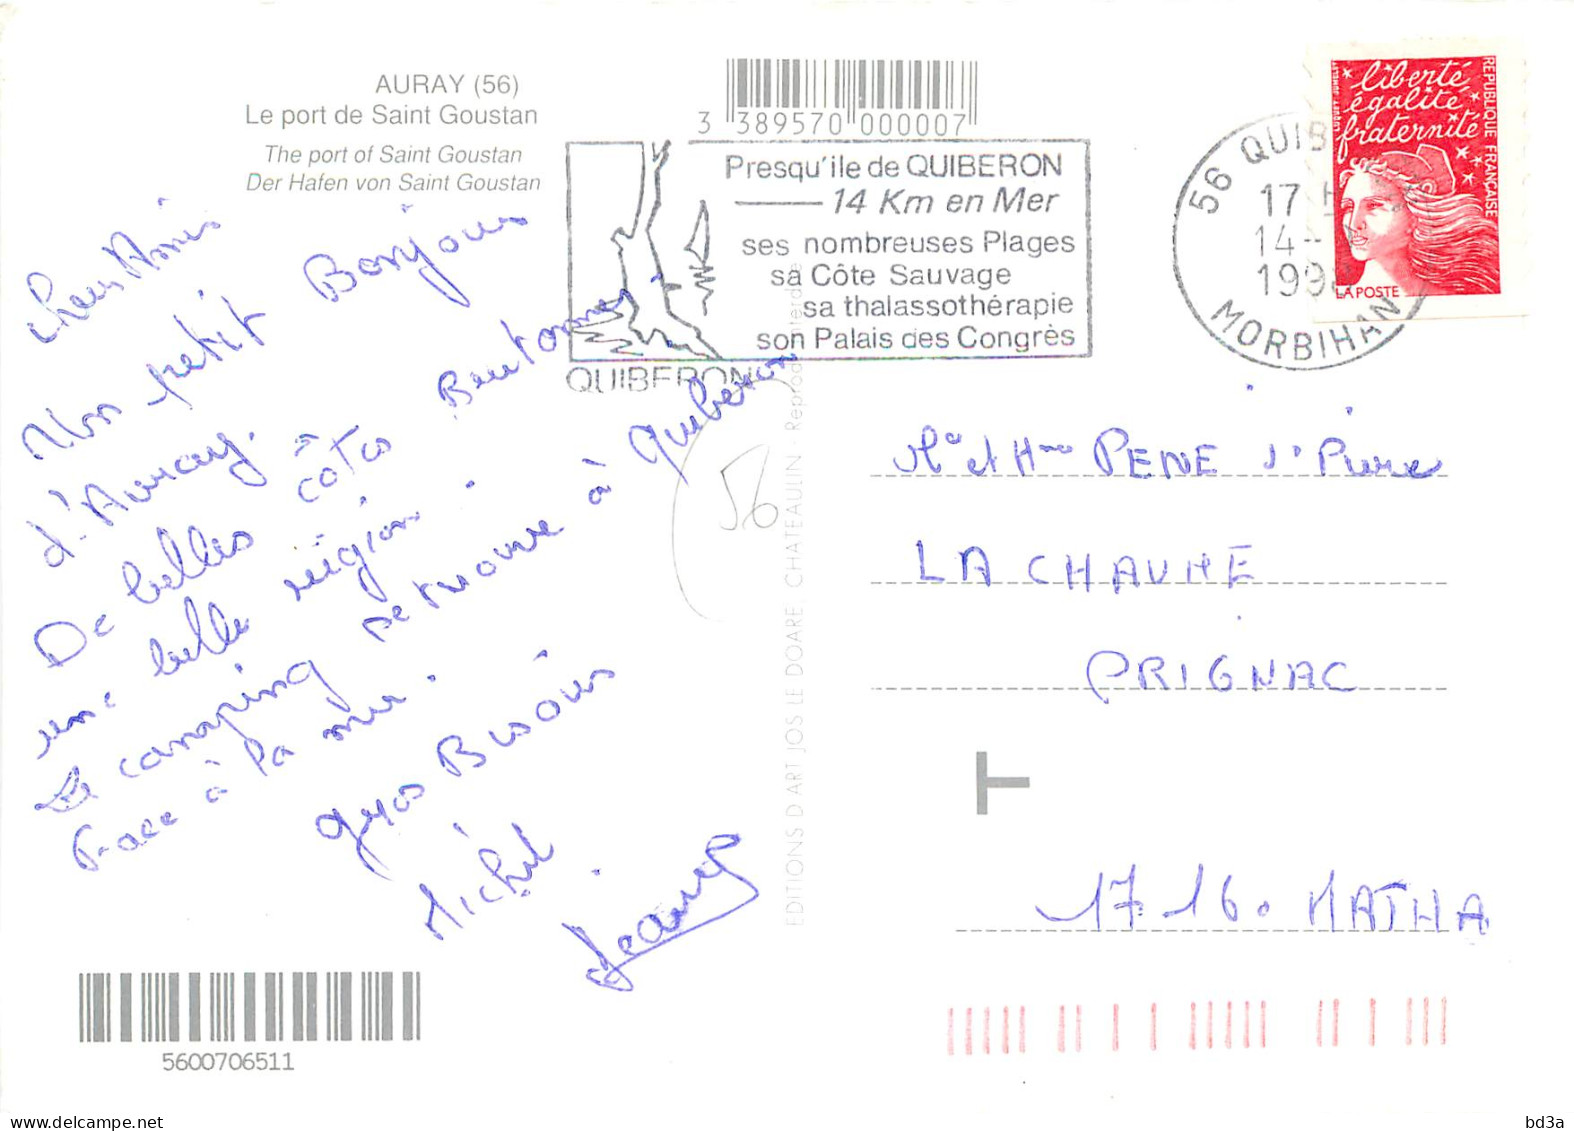 AURAY (56)
Le port de Saint Goustan
The port of Saint Goustan
Der Hafen von Saint Goustan
3 389570 000007
Presqu'ile de QUIBERON
14 Km en Mer
ses nombreuses Plages
sa Côte Sauvage
sa thalassothérapie
son Palais des Congrès
QUIBERON
56 QUIB
17 H
14-
199
MORBIHAN
liberté
égalité
fraternité
RÉPUBLIQUE FRANÇAISE
LA POSTE
Chers Amis
Mon petit Bonjour
d'Auray.
De belles côtes Bretonnes
une belle région.
Le camping se trouve à Quiberon
Face à la mer.
gros Bisous
Michel
Jeanne
56
EDITIONS D'ART JOS LE DOARE, CHATEAULIN - Reprod interdite
Mr et Mme PENE J. Pierre
LA CHAUME
PRIGNAC
T
17.16. MATHA
5600706511
bd3a